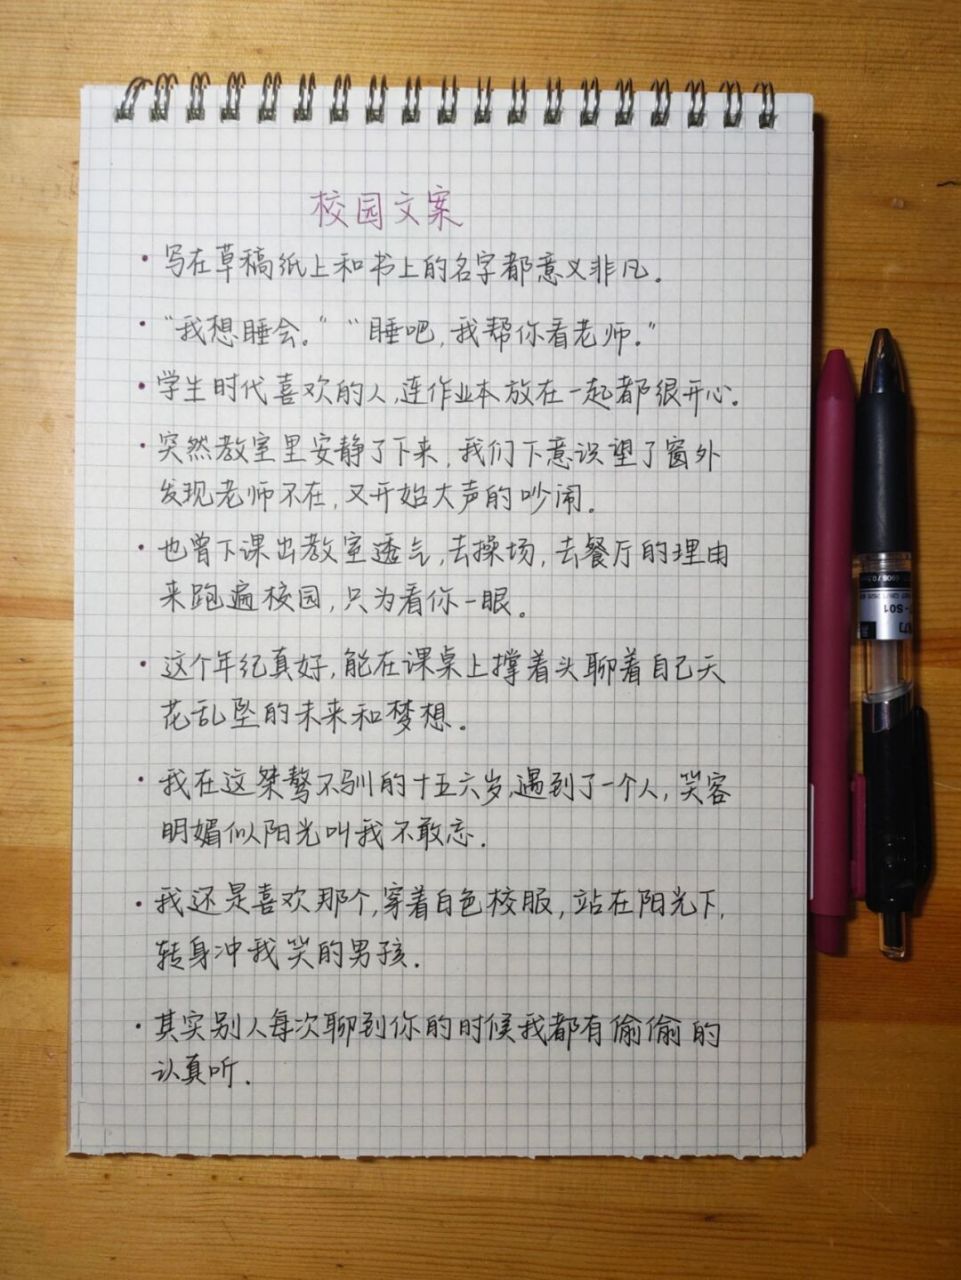 校园文案
·写在草稿纸上和书上的名字都意义非凡.
·"我想睡会。" "睡吧,我帮你看老师."
·学生时代喜欢的人,连作业本放在一起都很开心.
·突然教室里安静了下来,我们下意识望了窗外
发现老师不在,又开始大声的吵闹.
·也曾下课出教室透气,去操场,去餐厅的理由
来跑遍校园,只为看你一眼。
·这个年纪真好,能在课桌上撑着头聊着自己天
花乱坠的未来和梦想.
·我在这桀骜不驯的十五六岁,遇到了一个人,笑容
明媚似阳光叫我不敢忘.
·我还是喜欢那个,穿着白色校服,站在阳光下,
转身冲我笑的男孩.
·其实别人每次聊到你的时候我都有偷偷的
认真听.
S01